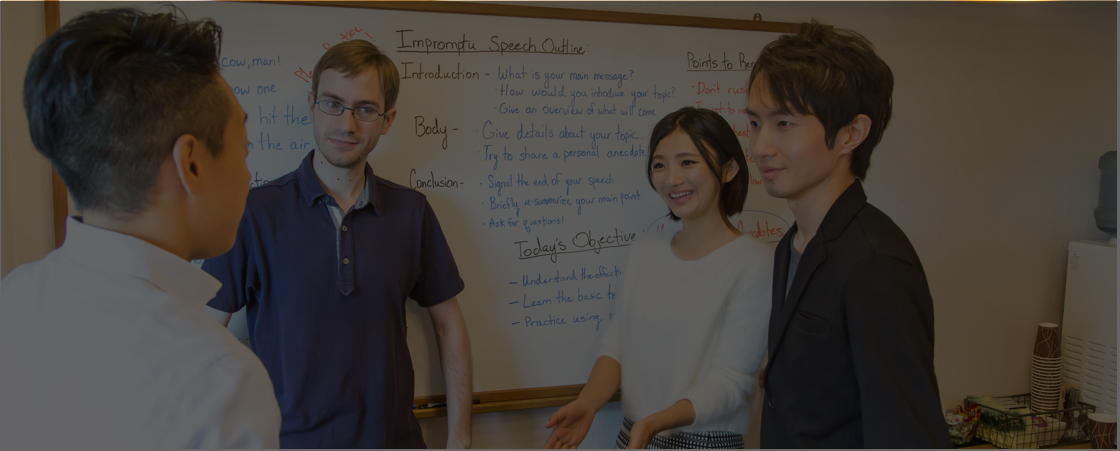 cow, man!
ow one
hit the
the air
Impromptu Speech Outline:
Introduction - · What is your main message?
· How would you introduce your topic?
· Give an overview of what will come
Body - · Give details about your topic
· Try to share a personal anecdote
Conclusion - · Signal the end of your speech
· Briefly re-summarize your main point
· Ask for questions!
Today's Objective
— Understand the effect
— Learn the basic
— Practice using
Points to
· Don't